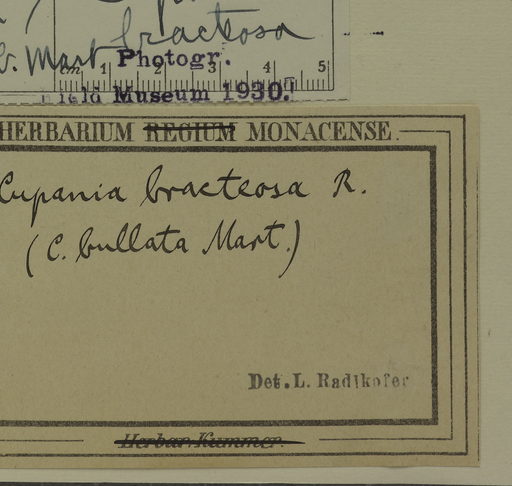 bracteosa
Mart
Photogr.
cm 1 2 3 4 5
Field Museum 1930.
HERBARIUM REGIUM MONACENSE
Cupania bracteosa R.
(C. bullata Mart.)
Det. L. Radlkofer
Herbar. Kummer.